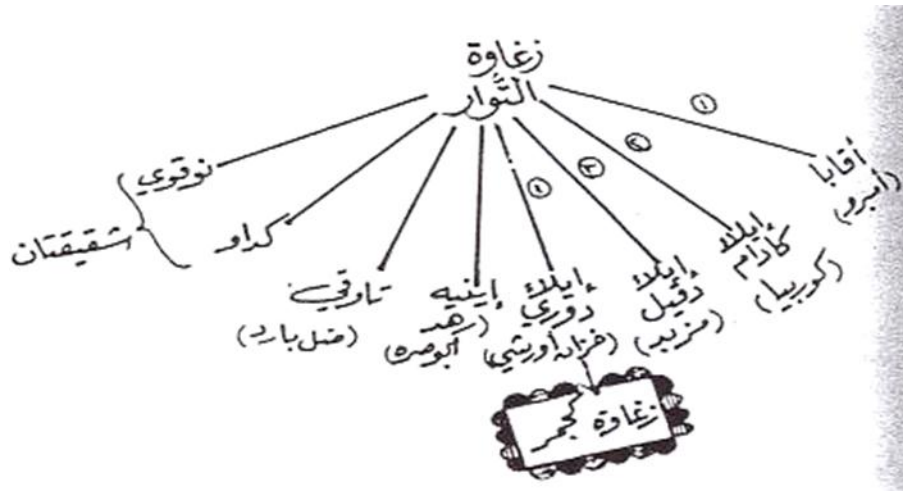 زغاوة
التوار
①
②
③
④
أقابا
(أمبرو)
إيلا
كادام
(كوربيا)
إيلا
دقيل
(مزبد)
إيلا
دوري
(خزان أورشي)
إينيه
(هد
أبوصره)
تاوقي
(ضل بارد)
كداو
نوقوي
شقيقتان
زغاوة